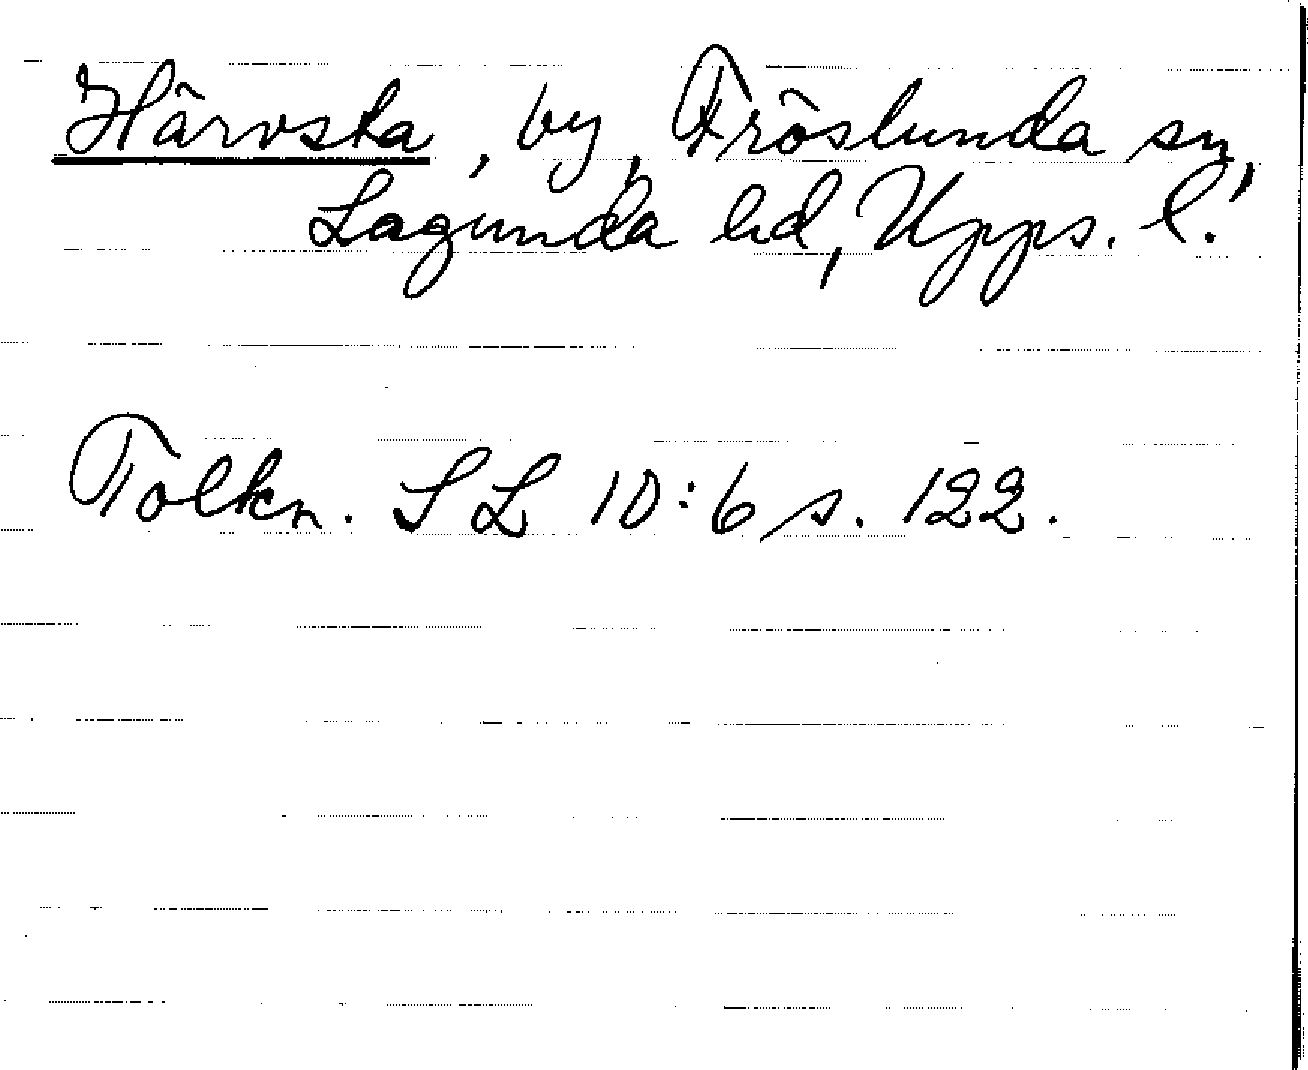 Härvsta, by, Fröslunda sn,
Lagunda hd, Upps. l.
Tolkn. SL 10:6 s. 122.